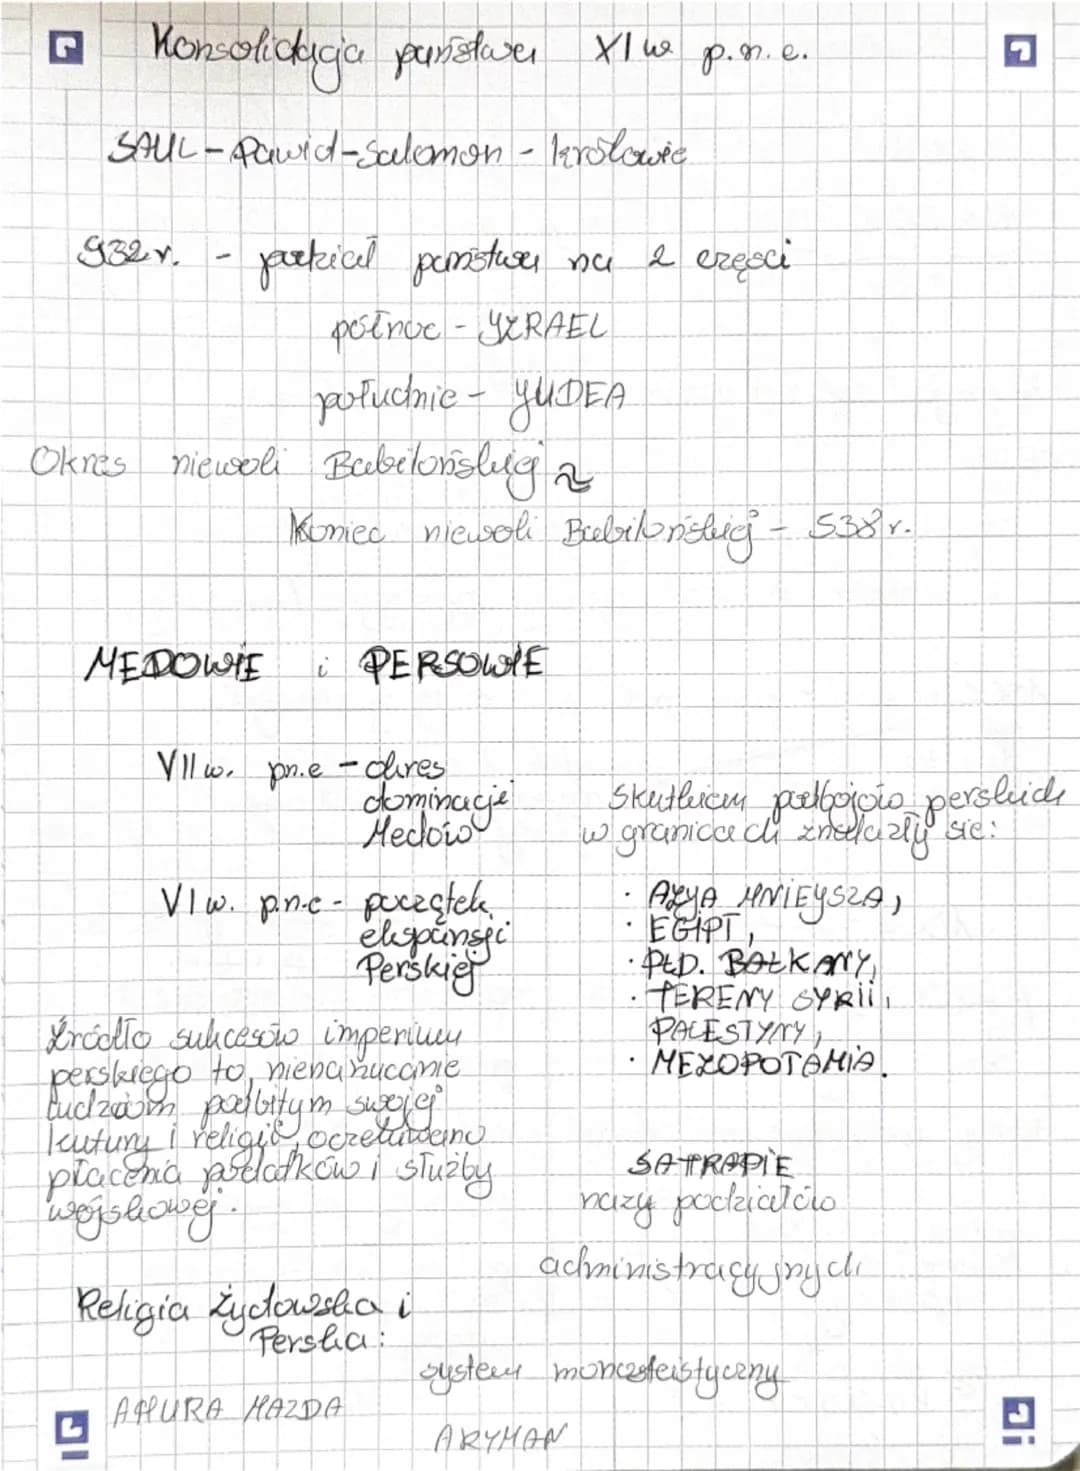 Konsolidacja państwa XI w p.n.e.
SAUL - Dawid - Salomon - królowie
932 r. - podział państwa na 2 części
północ - IZRAEL
południe - JUDEA
Okres niewoli Babilońskiej
Koniec niewoli Babilońskiej - 538 r.
MEDOWIE i PERSOWIE
VII w. p.n.e - okres
dominacje
Medów
VI w. p.n.e - początek
ekspansji
Perskiej
Źródło sukcesów imperium
perskiego to, nienarzucanie
ludziom podbitym swojej
kutury i religii, oczekiwano
płacenia podatków i służby
wojskowej.
Skutkiem podbojów perskich
w granicach znalazły się:
· AZJA MNIEJSZA,
· EGIPT,
· PŁD. BAŁKANY,
· TERENY SYRII,
PALESTYNY,
· MEZOPOTAMIA.
SATRAPIE
nazy podziałów
administracyjnych
Religia Żydowska i
Perska:
system monoteistyczny
AHURA MAZDA
ARYMAN